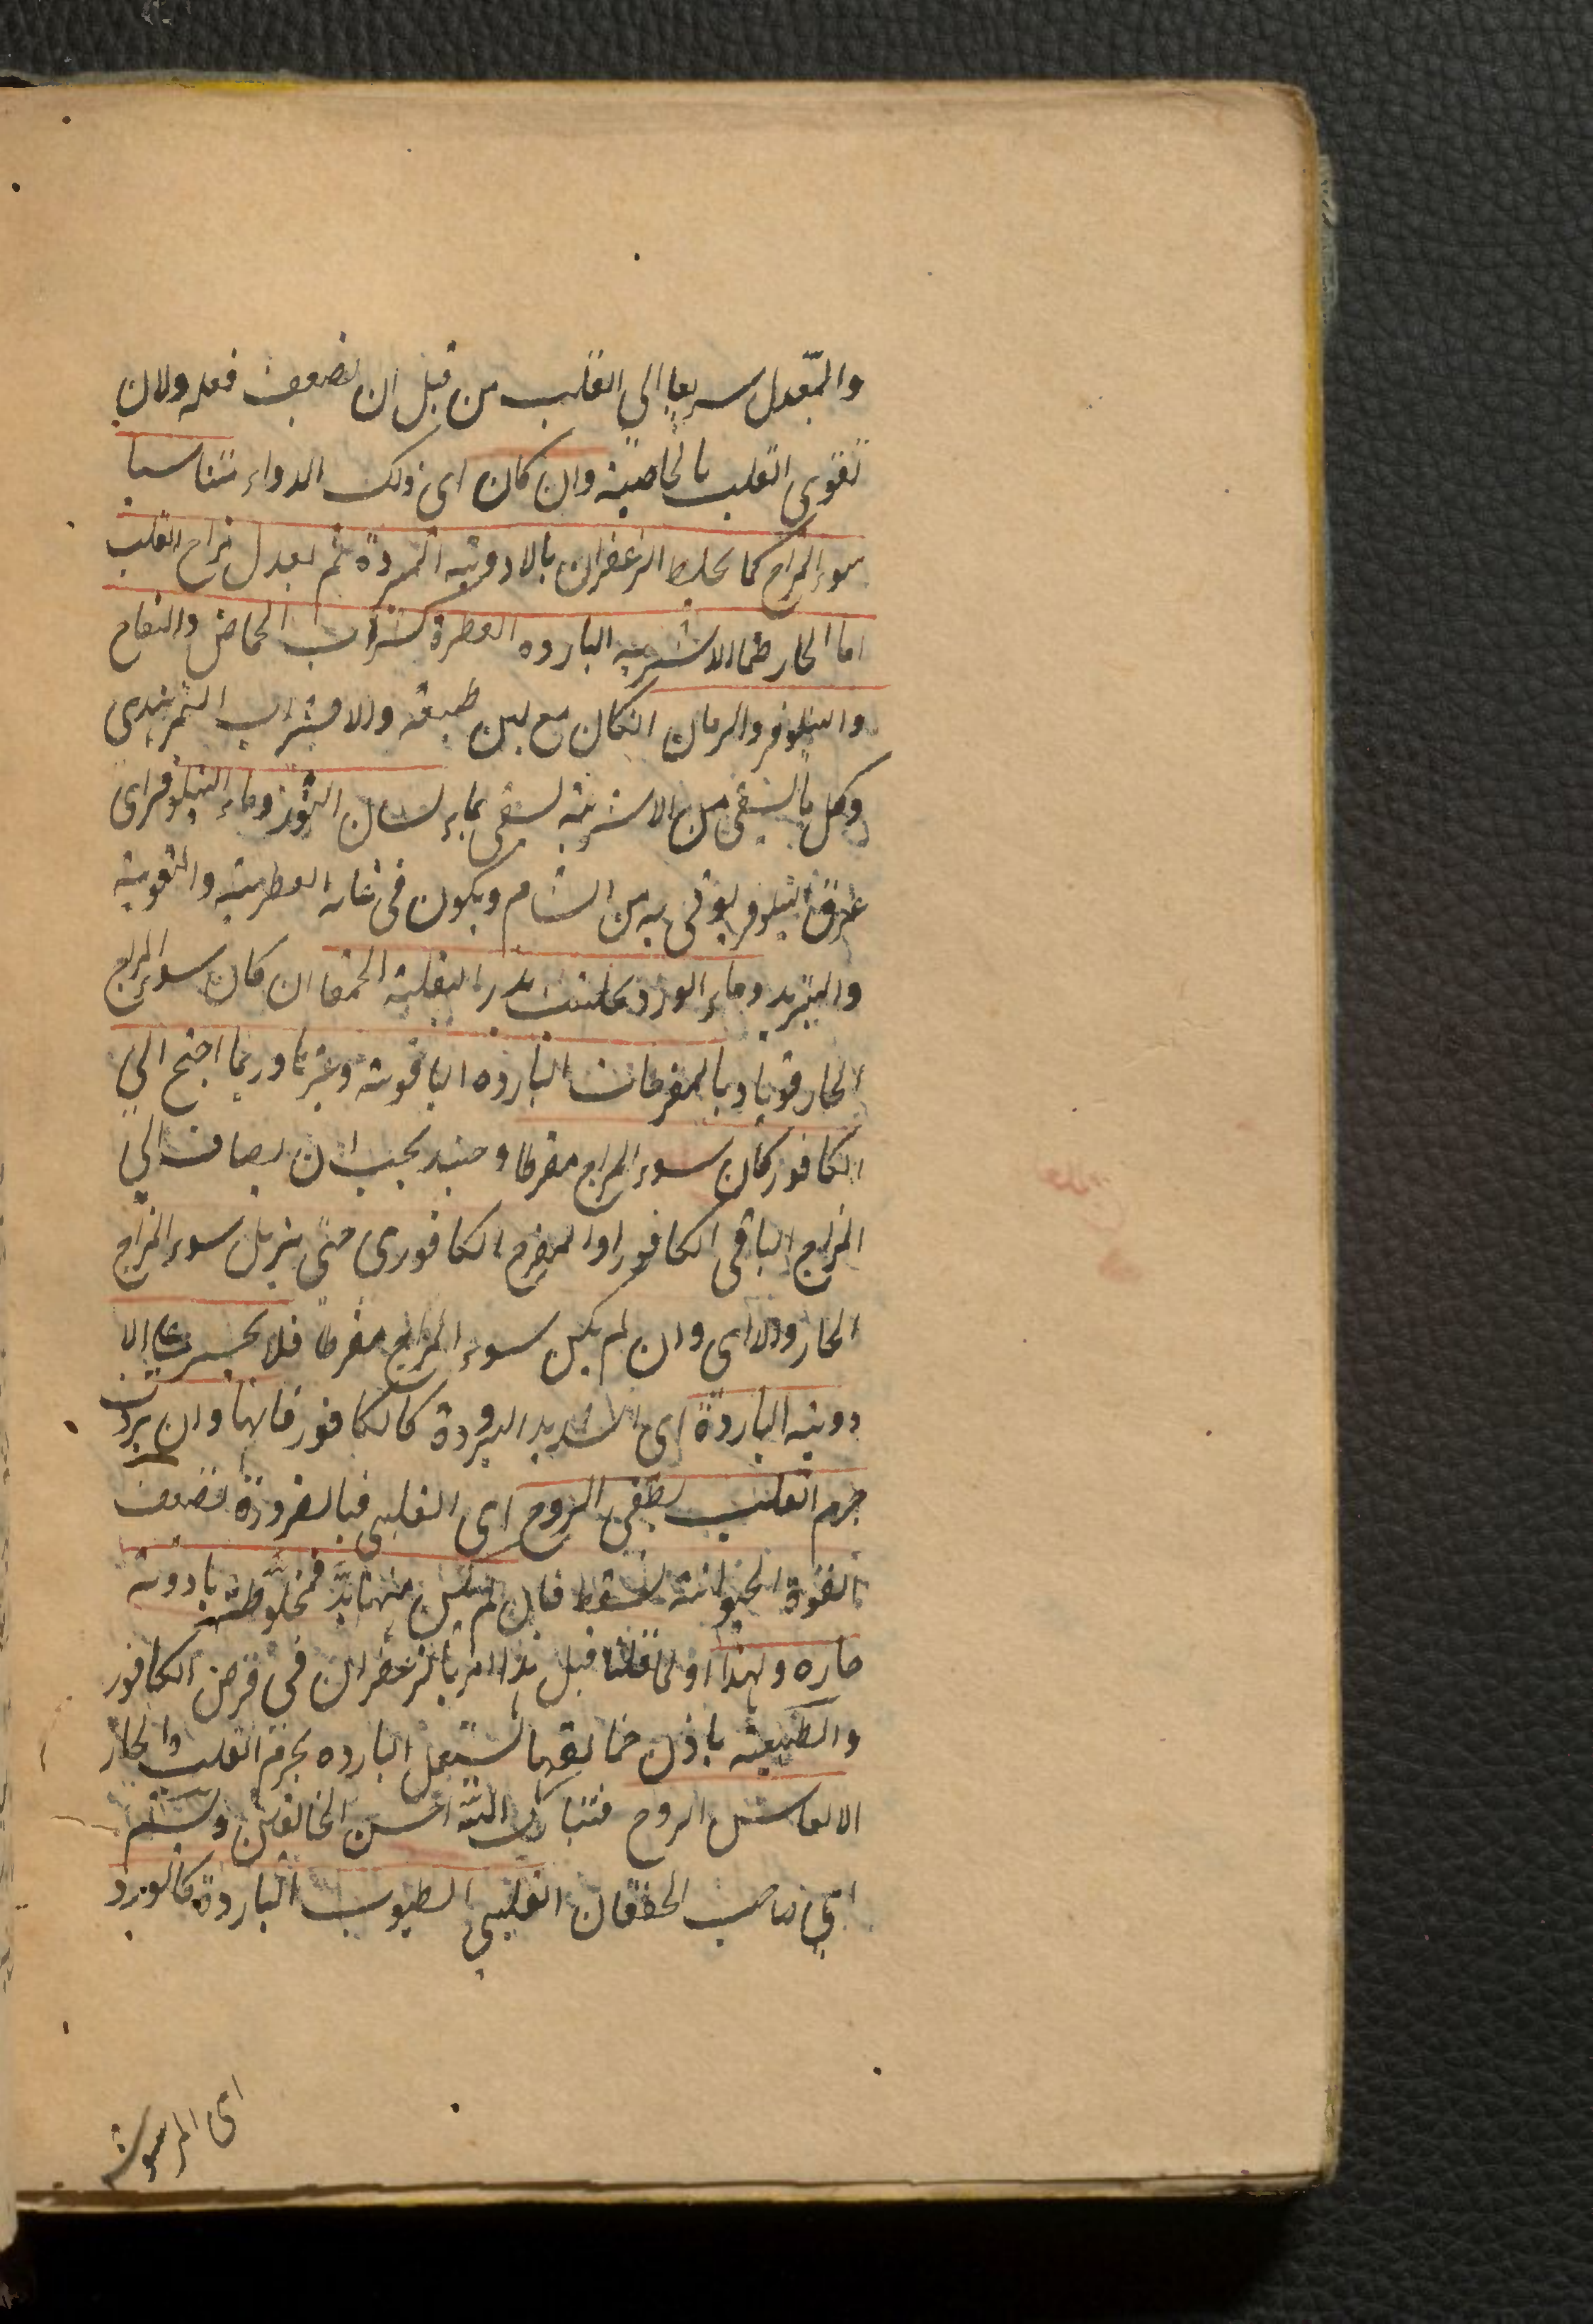 والمعدل سريعا الى القلب من قبل ان يضعف فعله ولان
تقوى القلب بالخاصية وان كان اى ذلك الدواء مناسبا
سوء المزاج كما يخلط الزعفران بالادوية المبردة ثم يعدل مزاج القلب
اما الحار فما الاشربه البارده العطرة كشراب الحماض والتفاح
والنيلوفر والرمان انكان مع لين طبيعة والا فشراب التمر هندى
وكل ما يسقى من الاشربة يسقى بماء لسان الثور وماء النيلوفر اى
عرق النيلوفر يوتى به من الشام ويكون فى غاية العطرية والتقوية
والتبريد وماء الورد مع بزر البقلة الحمقا ان كان سوء المزاج
الحار قويا وبالمفرحات البارده الياقوتية وغيرها وربما احتج الى
الكافور كان سوء المزاج مفرطا وحينئذ يجب ان يضاف الى
المزاج الباقى الكافور او المفرح الكافورى حتى يزيل سوء المزاج
الحار والا اى وان لم يكن سوء المزاج مفرطا فلا يجسر على الا
دوية الباردة اى الشديد البرودة كالكافور فانها وان بردت
جرم القلب يطفى الروح اى القلبى فبالضرورة تضعف
القوة الحيوانية فيسقط فان لم يكن منها بد فمخلوطة بادوية
حاره ولهذا قلنا قبل هذا امر بالزعفران فى قرص الكافور
والطبيعة باذن خالقها يستعمل البارده بجرم القلب والحار
الروح فتبارك الله احسن الخالقين ويشم
اى صاحب الخفقان القلبى الطيوب الباردة كالورد
اى المرشوش